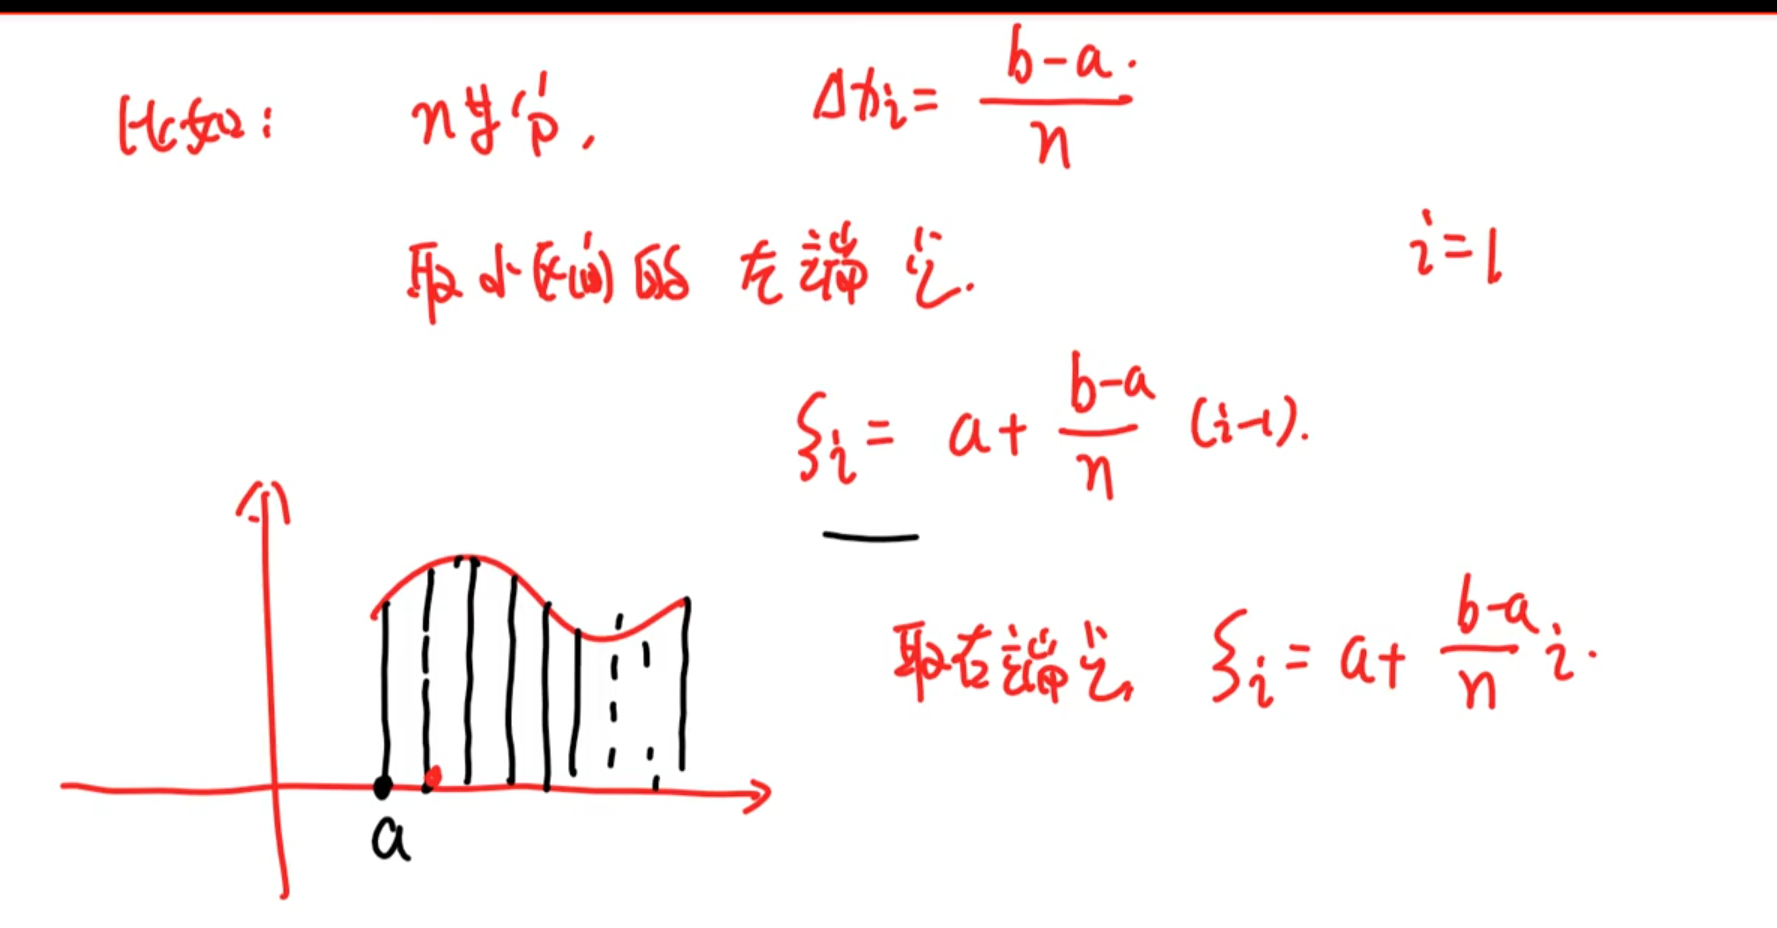 比如: n等分, Δxᵢ = (b-a)/n
取小区间的左端点. i=1
ξᵢ = a + (b-a)/n (i-1).
取右端点, ξᵢ = a + (b-a)/n i.
a